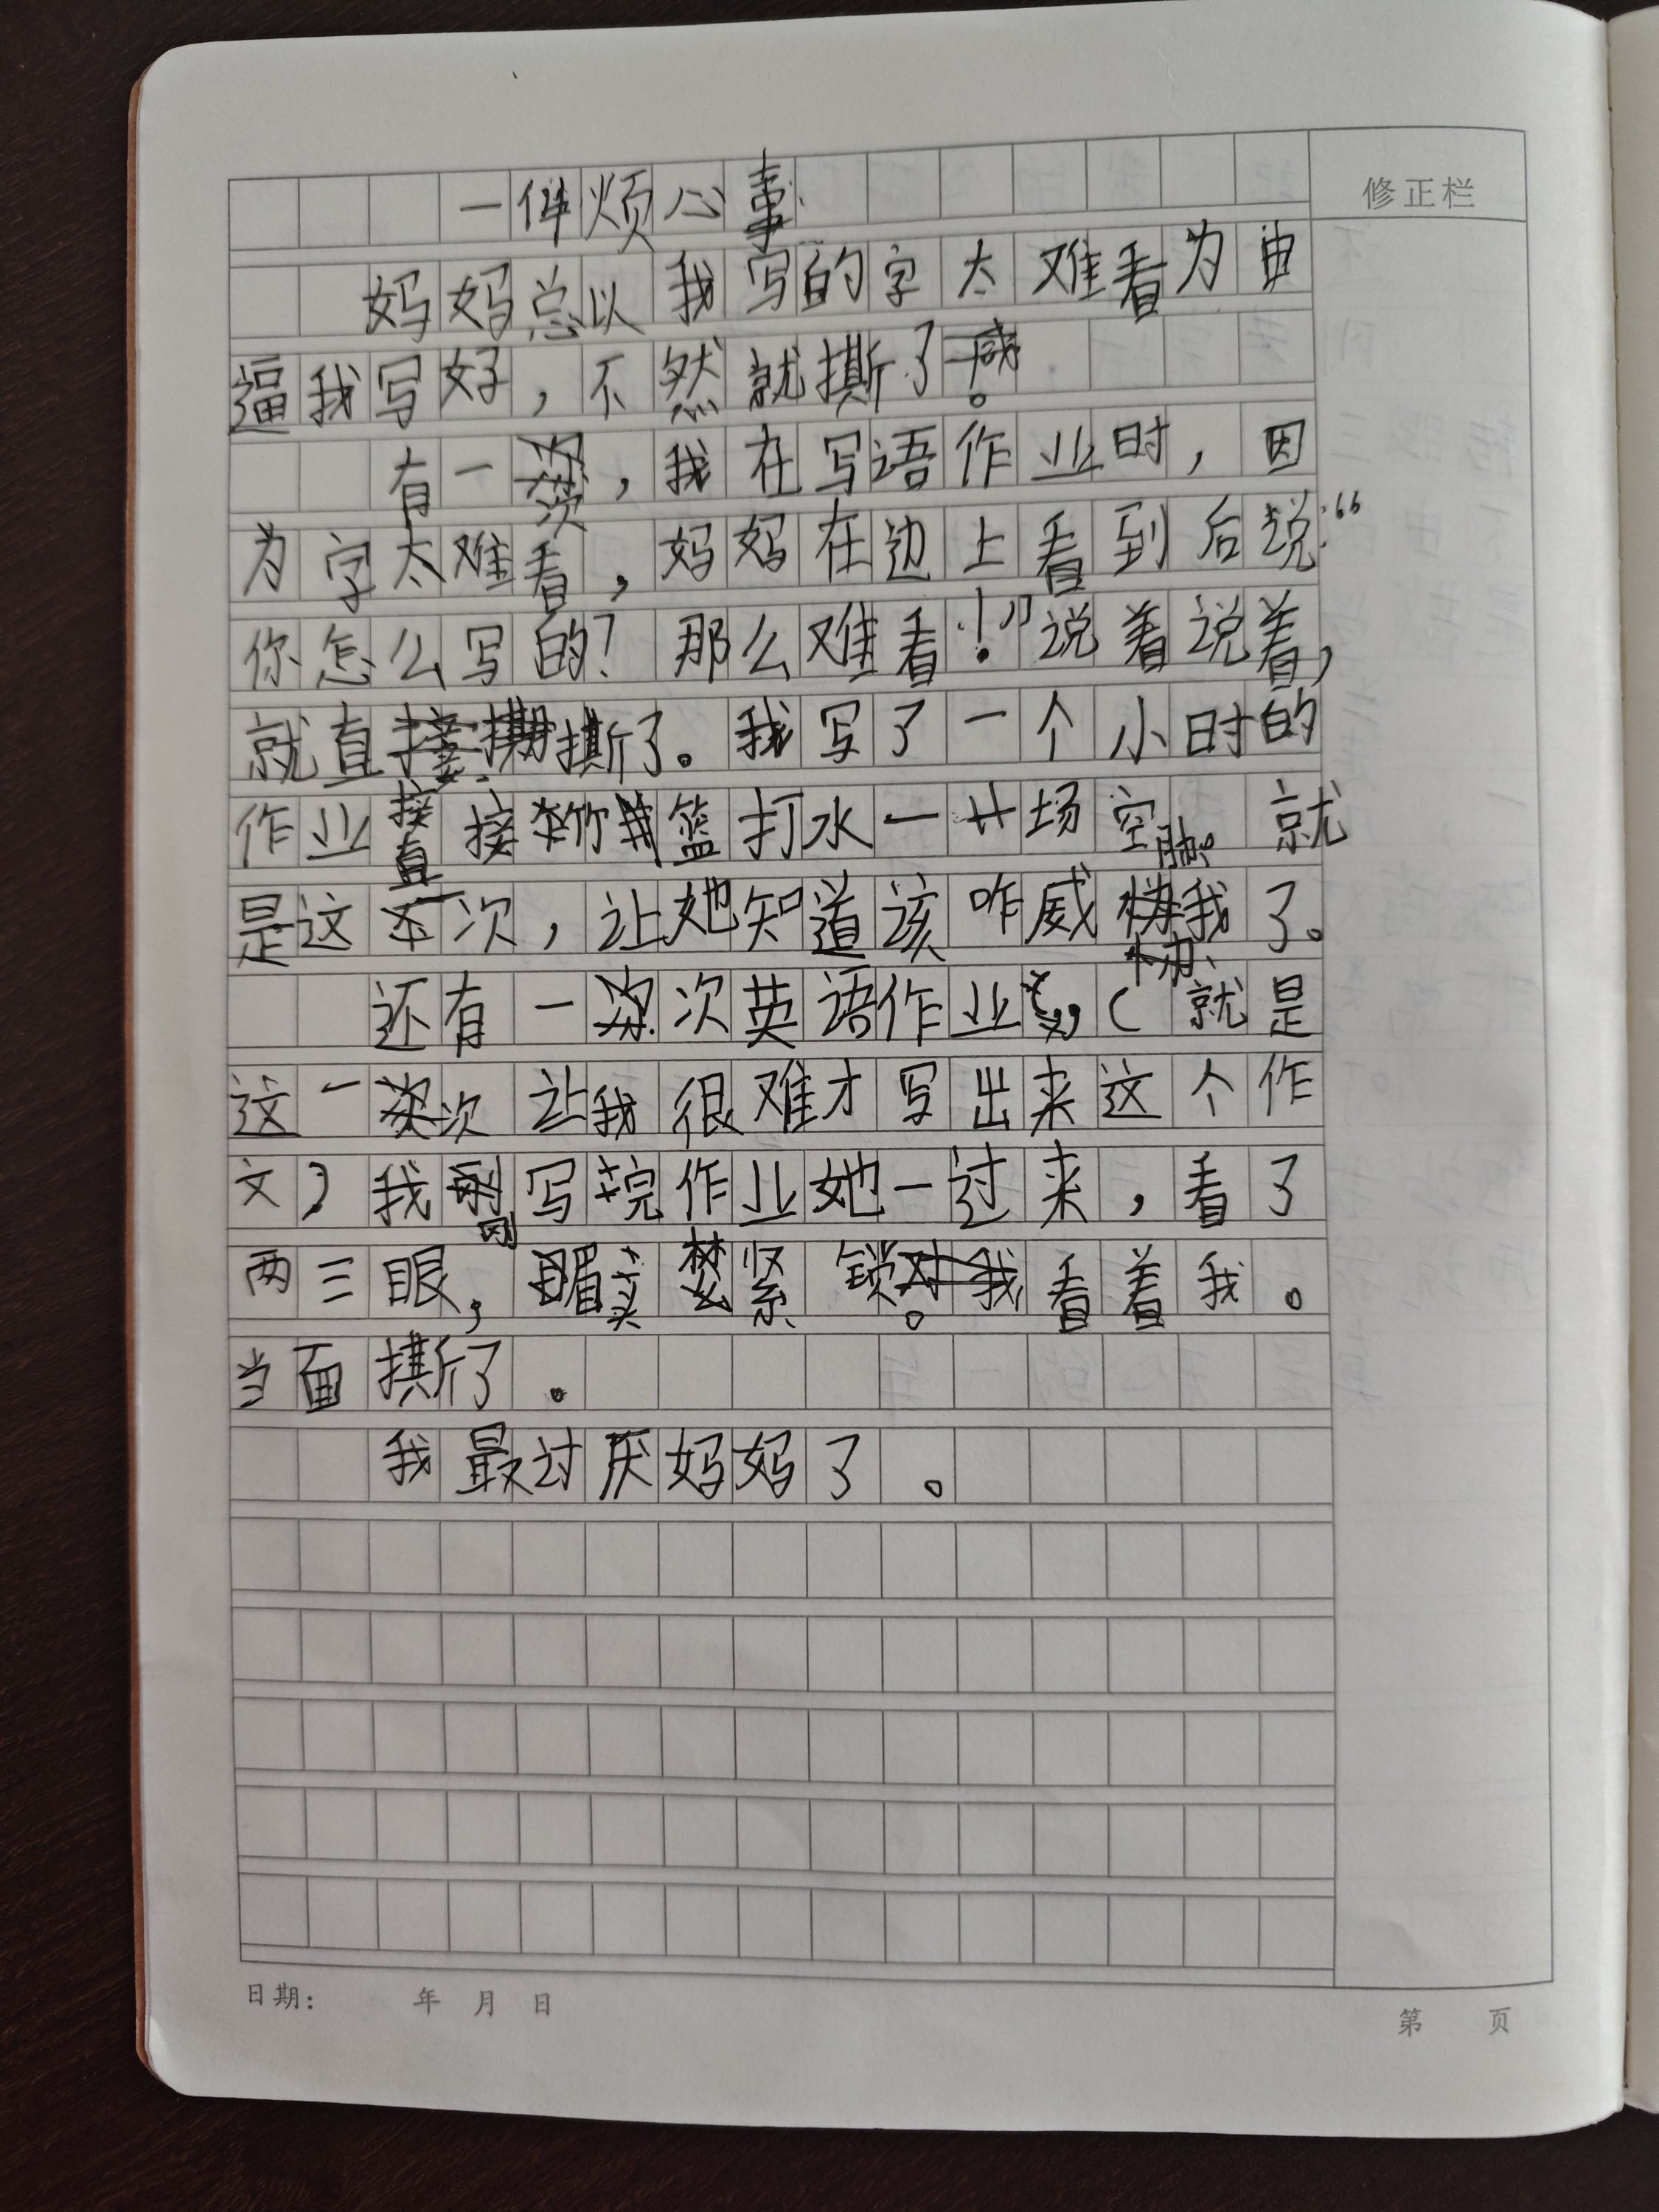 修正栏
一件烦心事
妈妈总以我写的字太难看为由
逼我写好，不然就撕了。
有一次，我在写语作业时，因
为字太难看，妈妈在边上看到后说：“
你怎么写的？那么难看！”说着说着，
就直接撕了。我写了一个小时的
作业直接竹篮打水一场空。就
是这次，让她知道该咋威胁我了。
还有一次英语作业，（就是
这一次让我很难才写出来这个作
文）我刚写完作业她一过来，看了
两三眼，眉头紧锁。看着我。
当面撕了。
我最讨厌妈妈了。
日期：　年　月　日
第　页